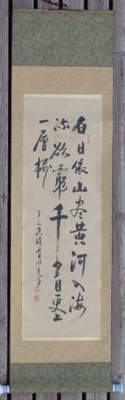 白日依山尽黄河入海
流欲窮千里目更上
一層楼